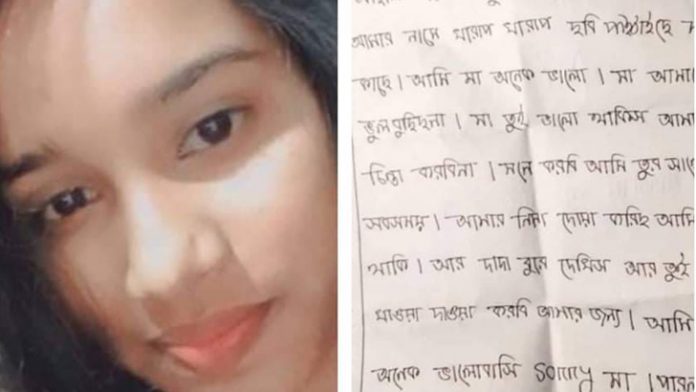 আমার নামে খারাপ খারাপ ছবি পাঠাইছে
কাছে। আমি মা অনেক ভালো। মা আমা
ভুল বুঝিছনা। মা তুই ভালো থাকিস আমা
চিন্তা করবিনা। মনে করবি আমি তুর সাথে
সবসময়। আমার দোয়া করিছ আমি
থাকি। আর দাদা বুরে দেখিস আর তুই
খাওয়া দাওয়া করবি আমার জন্য। আমি
অনেক ভালোবাসি sorry মা।